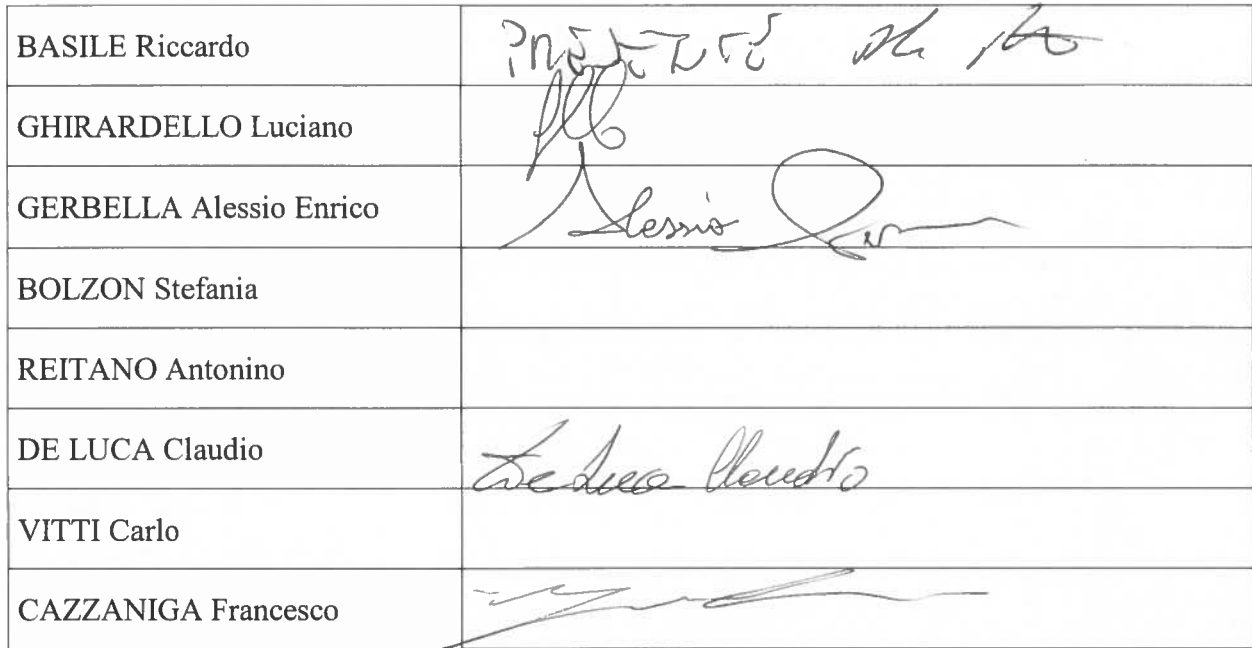 BASILE Riccardo PRESENTE
GHIRARDELLO Luciano
GERBELLA Alessio Enrico Alessio
BOLZON Stefania
REITANO Antonino
DE LUCA Claudio De Luca Claudio
VITTI Carlo
CAZZANIGA Francesco